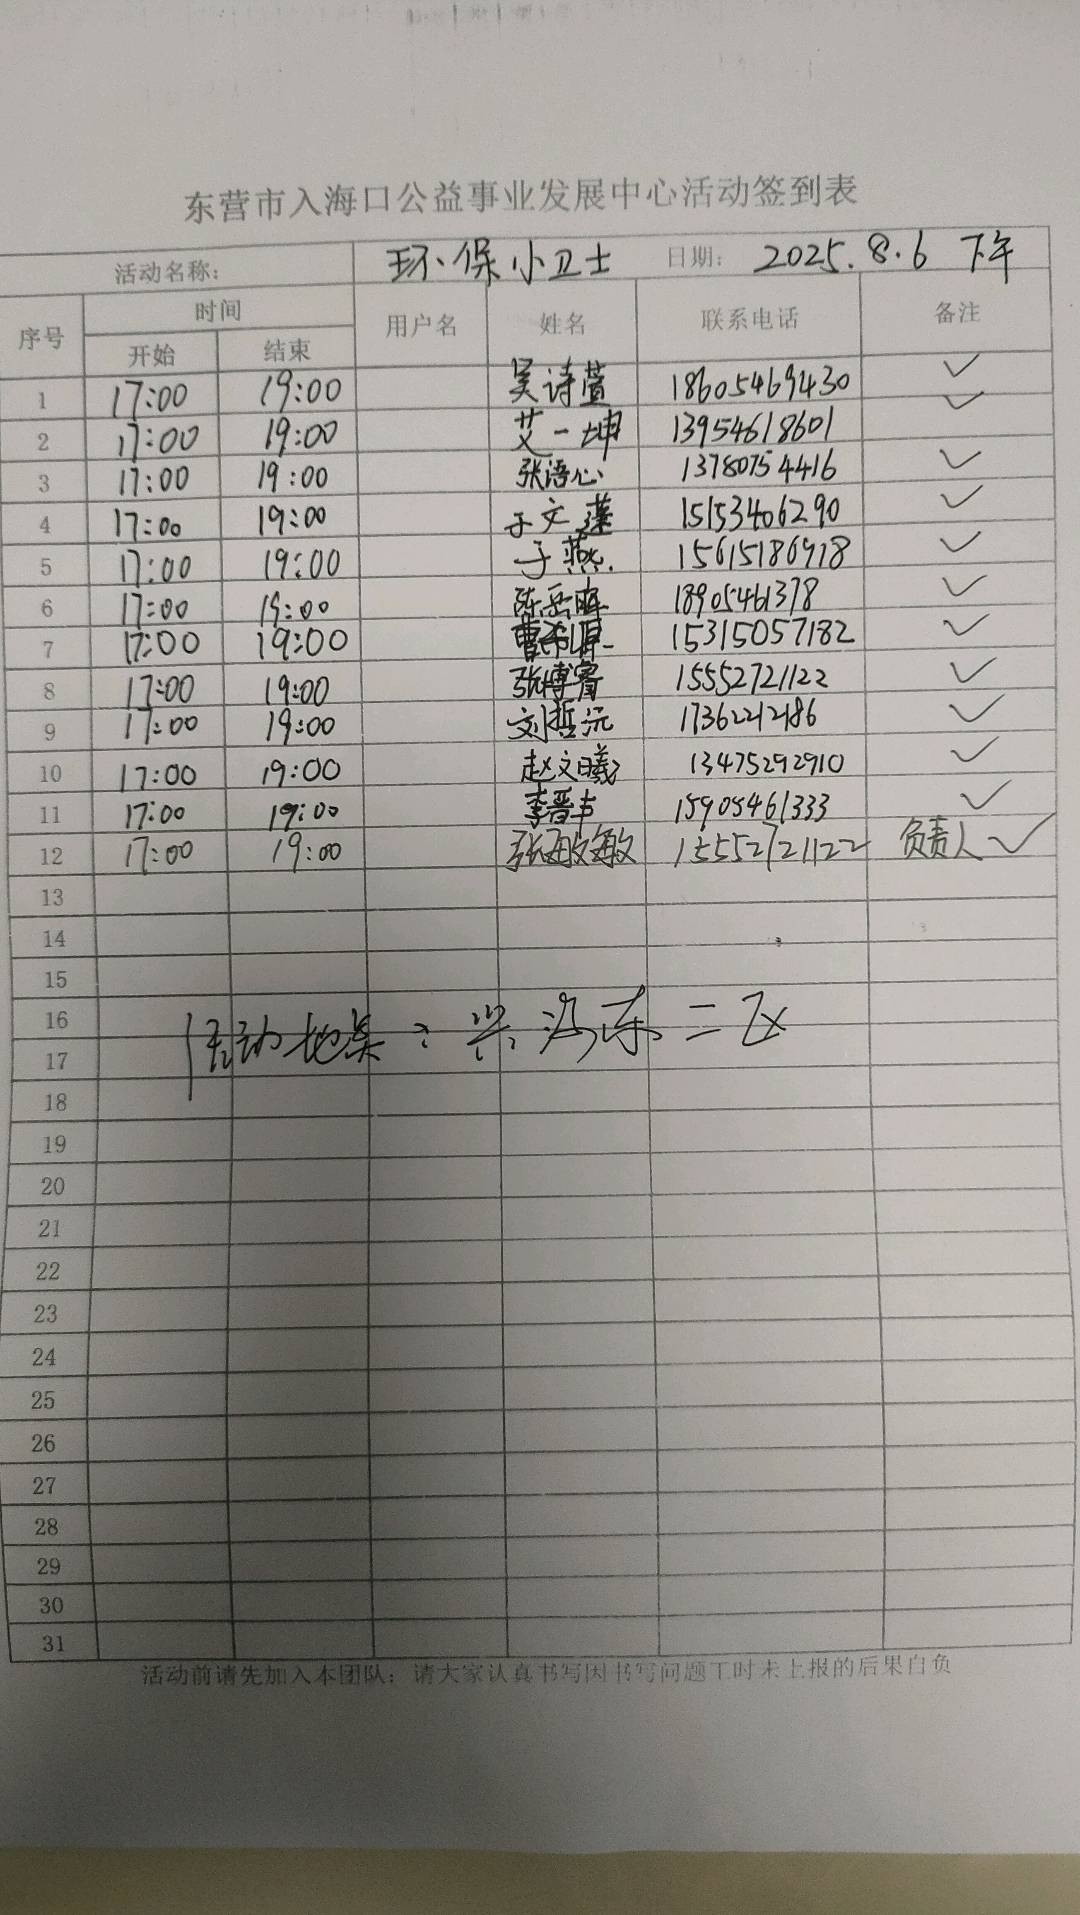 东营市入海口公益事业发展中心活动签到表
活动名称: 环保小卫士 日期: 2025.8.6 下午
序号 时间 用户名 姓名 联系电话 备注
开始 结束
1 17:00 19:00 吴诗萱 18605469430 ✓
2 17:00 19:00 艾一坤 13954618601 ✓
3 17:00 19:00 张语心 13780754416 ✓
4 17:00 19:00 于文蕴 15153406290 ✓
5 17:00 19:00 于燕 15615186918 ✓
6 17:00 19:00 陈岳晖 18905461378 ✓
7 17:00 19:00 15315057182 ✓
8 17:00 19:00 张博睿 15552721122 ✓
9 17:00 19:00 刘哲沅 17362212186 ✓
10 17:00 19:00 赵文曦 13475292910 ✓
11 17:00 19:00 李晋丰 15905461333 ✓
12 17:00 19:00 张敏敏 15552721122 负责人 ✓
13
14
15
16
活动地点: 兴河东二区
17
18
19
20
21
22
23
24
25
26
27
28
29
30
31
活动前请先加入本团队; 请大家认真书写因书写问题工时未上报的后果自负